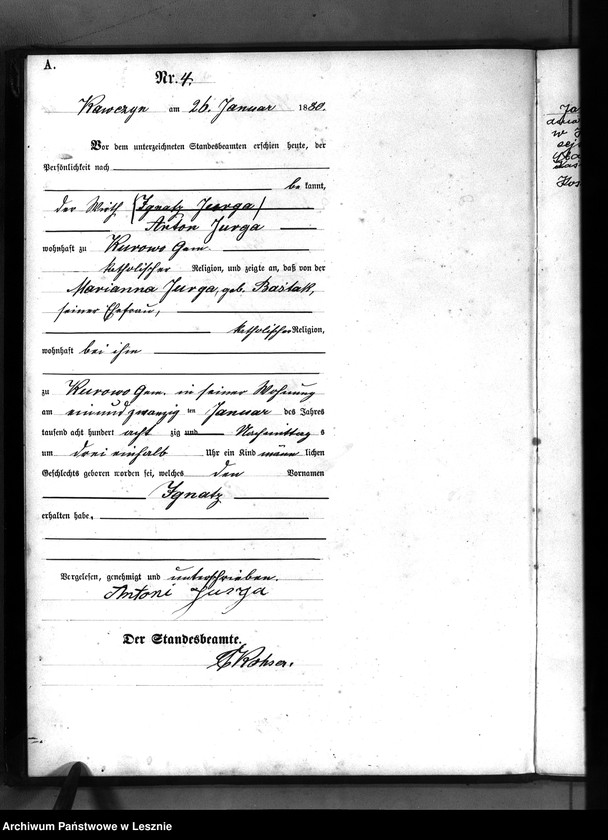 A.
Nr. 4.
Kawczyn am 26. Januar 1880.
Vor dem unterzeichneten Standesbeamten erschien heute, der
Persönlichkeit nach
bekannt,
der Wirth (Ignatz Jurga)
Anton Jurga
wohnhaft zu Kurowo Gem.
katholischer Religion, und zeigte an, daß von der
Marianna Jurga, geb. Bastak,
seiner Ehefrau,
katholischer Religion,
wohnhaft bei ihm
zu Kurowo Gem. in seiner Wohnung
am einundzwanzig ten Januar des Jahres
tausend acht hundert acht zig und Nachmittag s
um drei einhalb Uhr ein Kind männ lichen
Geschlechts geboren worden sei, welches den Vornamen
Ignatz
erhalten habe.
Vorgelesen, genehmigt und unterschrieben.
Antoni Jurga
Der Standesbeamte.
Ja
w
Archiwum Państwowe w Lesznie